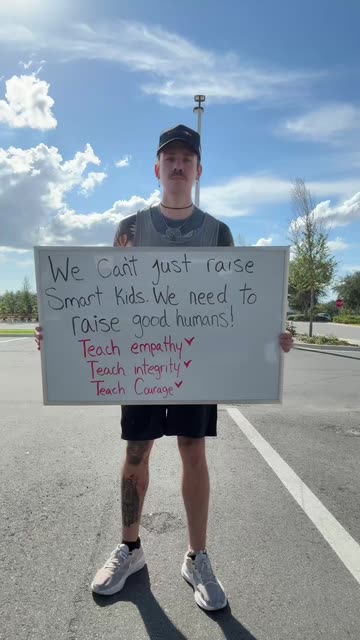 We Can't just raise
Smart Kids. We need to
raise good humans!
Teach empathy✓
Teach integrity✓
Teach Courage✓